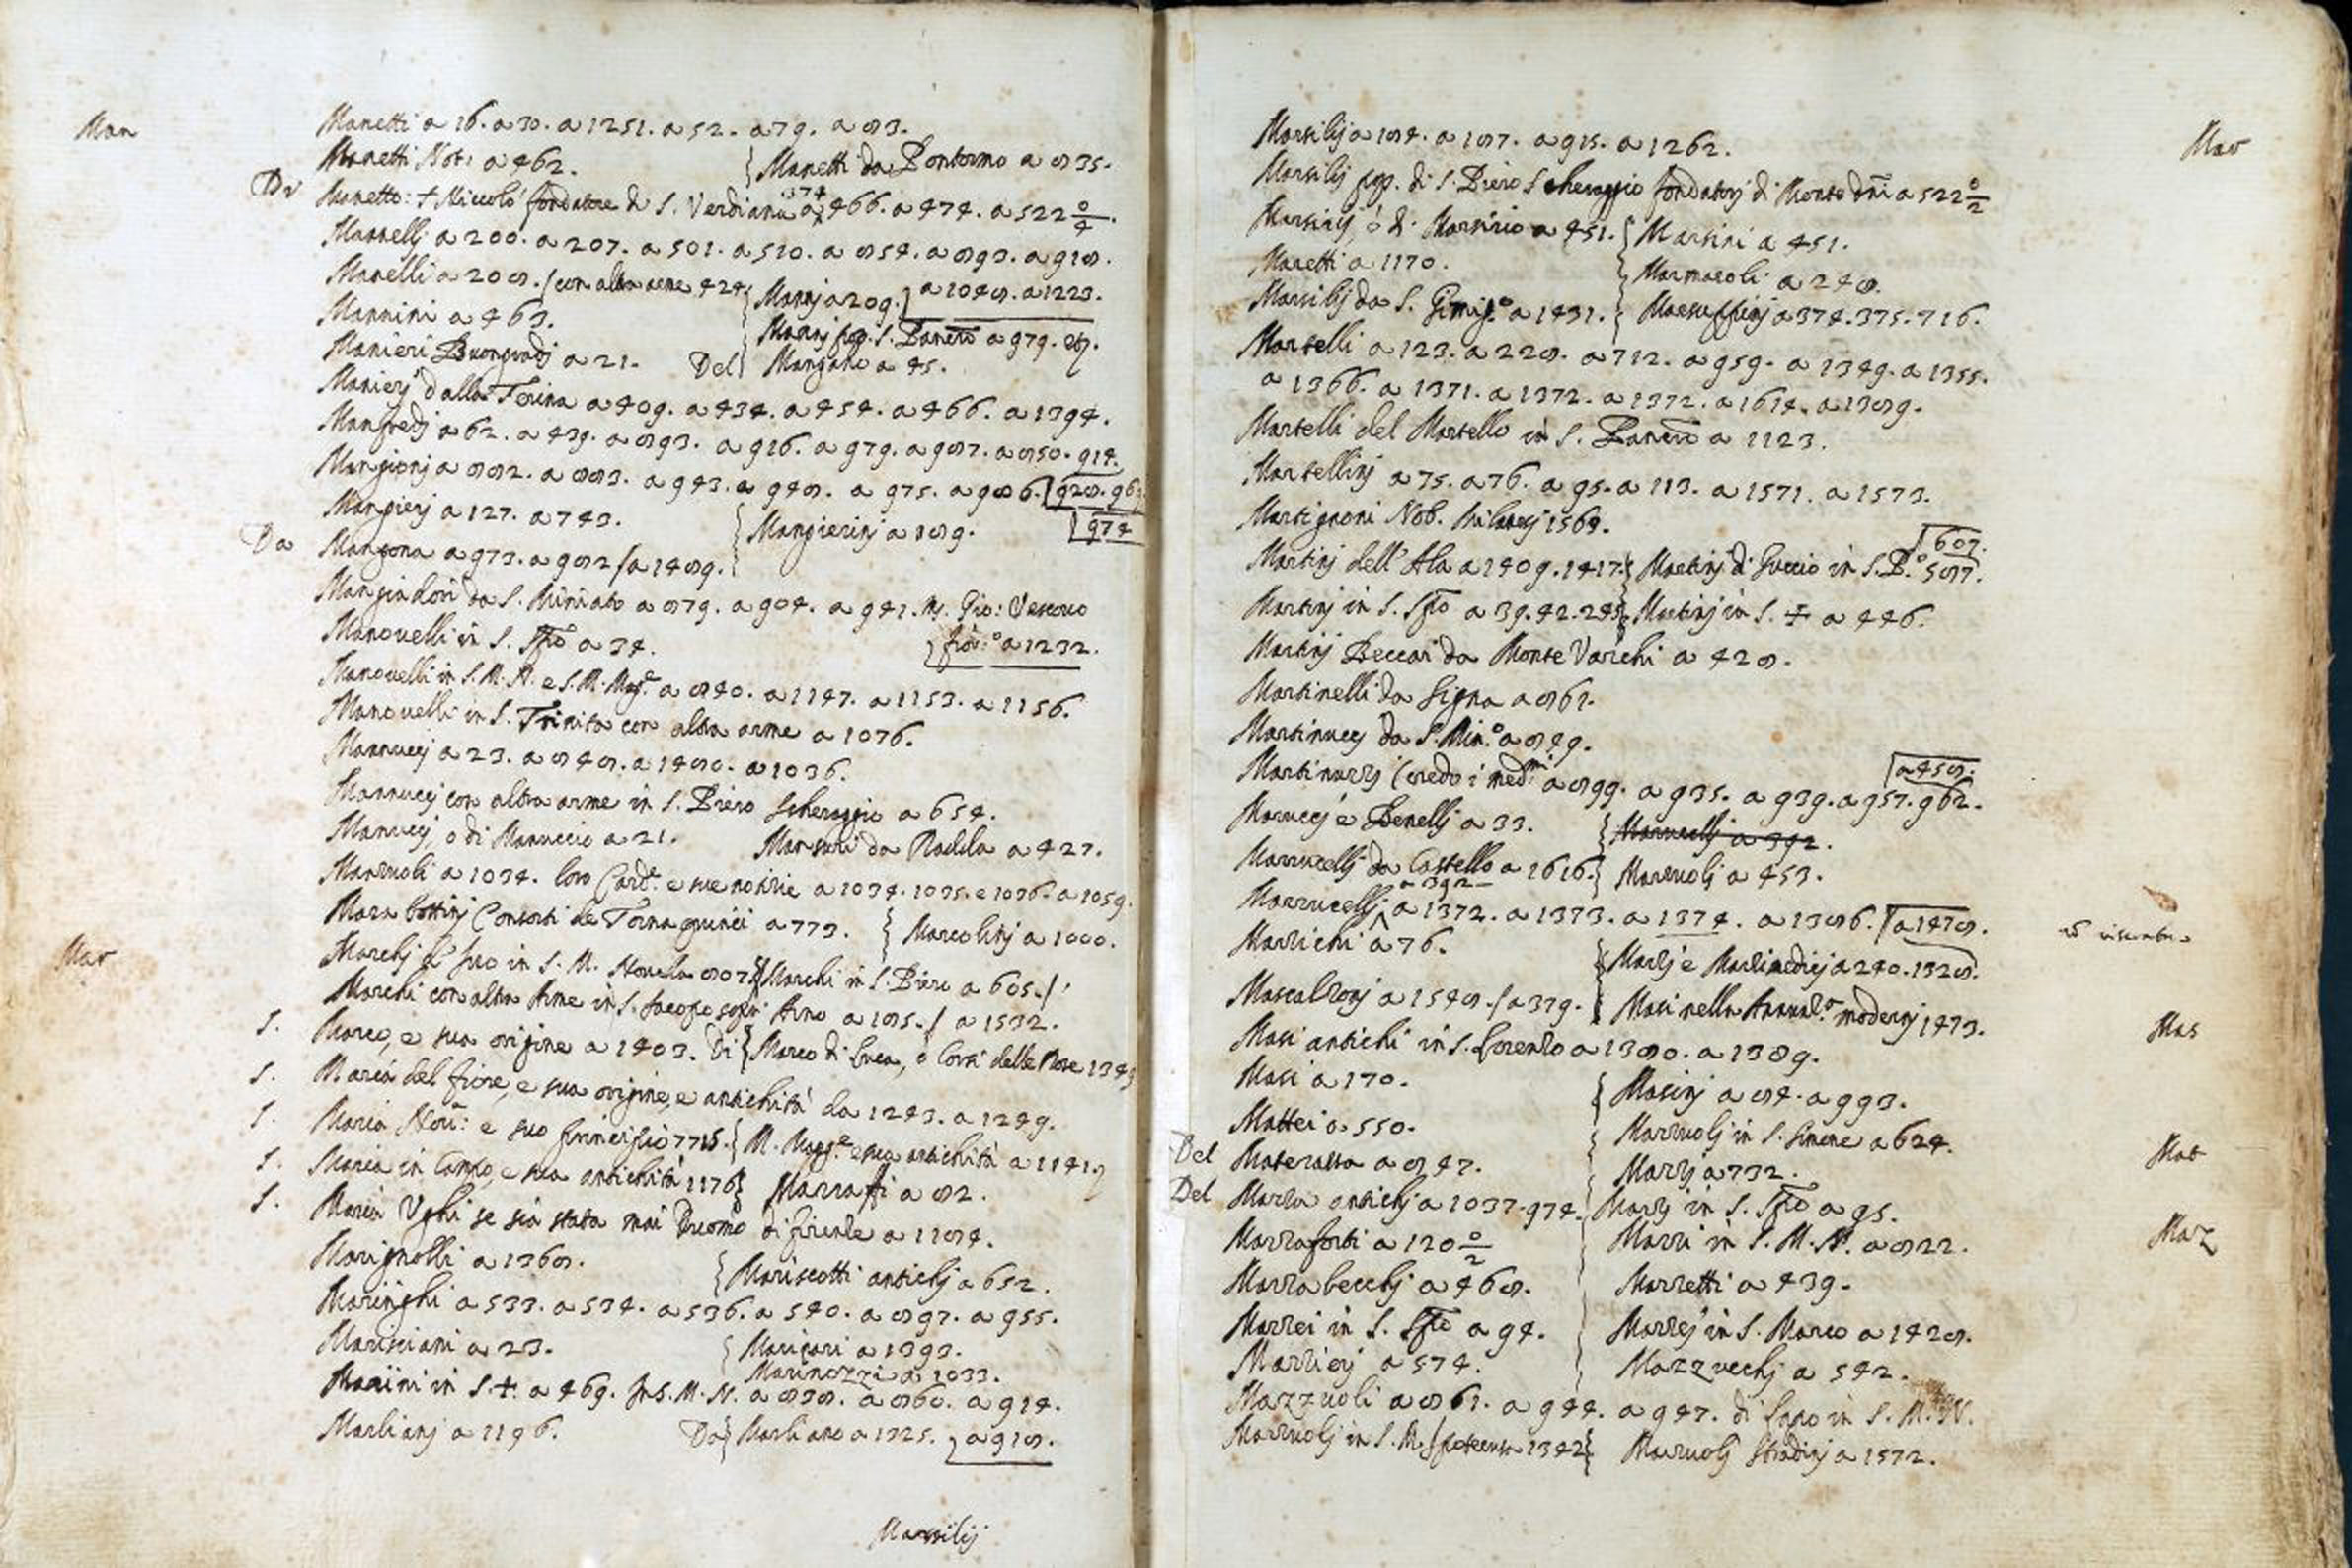 Man
Manetti a 16. a 30. a 1251. a 52. a 79. a 883.
Manetti Not: a 462. { Manetti da Pontormo a 835.
Di Manetto: + Niccolò fondatore di S. Verdiana a 374 466. a 474. a 522 0/4.
Mannellj a 200. a 207. a 501. a 510. a 854. a 893. a 918.
Manelli a 208. / con altra arme 424. { Mannj a 209. a 1048. a 1223.
Mannini a 463. Mannj pop. S. Pancro a 979. et.
Manieri Buongradj a 21. Del Mangano a 45.
Manierj dalla Terina a 409. a 434. a 454. a 466. a 1394.
Manfredj a 62. a 439. a 893. a 916. a 979. a 987. a 850. 914.
Mangionj a 882. a 883. a 943. a 948. a 975. a 986. 928. 96
Mangierj a 127. a 743. { Mangierinj a 189. 974
Da Mangona a 973. a 982 / a 1489.
Mangiadori da S. Miniato a 879. a 904. a 941. M. Gio: Vescovo
Manovelli in S. Sp̄o a 34. fior:o a 1232.
Manovelli in S. M. N. e S. M. Mag.e a 840. a 1147. a 1153. a 1156.
Manovelli in S. Trinita con altra arme a 1076.
Mannuccj a 23. a 848. a 1480. a 1036.
Mannuccj con altra arme in S. Piero Scheraggio a 654.
Manuccj, o di Manuccio a 21. Mansuri da Radda a 427.
Manzuoli a 1034. loro Card.e e sue notizie a 1034. 1035. e 1036. a 1059.
Marabottinj Consorti de Tornaquinci a 773. { Marcolinj a 1000.
Mar
Marchj d' Ivo in S. M. Novella 807 { Marchi in S. Piero a 605. /
Marchi con altra Arme in S. Jacopo sopr' Arno a 185. / a 1532.
S. Marco, e sua origine a 1403. Di { Marco di Luca, o Corsi delle Pore 134
S. Maria del fiore, e sua origine, e antichità da 1243. a 1249.
S. Maria Nov.a: e suo principio 771 { M. Magg.e e sua antichità a 1141.
S. Maria in Campo, e sua antichità 1176 { Marraffi a 82.
S. Maria Ughi se sia stata mai Duomo di firenze a 1184.
Marignolli a 1368. { Mariscotti antichj a 652.
Maringhi a 533. a 534. a 536. a 540. a 897. a 955.
Marisciani a 23. { Maricari a 1393.
Marinozzi a 1033.
Marini in S. +. a 469. In S. M. N. a 838. a 860. a 914.
Marlianj a 1196. Da { Marliano a 1325. a 918.
Marsilij
Mar
Marsilij a 184. a 187. a 915. a 1262.
Marsilij pop. di S. Piero Scheraggio fondatorj di Monte dn̄i a 522 0/2
Marsinj, ò d. Marsirio a 451. { Marsini a 451.
Maretti a 1170. Marmaroli a 248.
Marsilij da S. Gimig.o a 1431. { Marsuppinj a 374. 375. 716.
Martelli a 123. a 228. a 712. a 959. a 1349. a 1355.
a 1366. a 1371. a 1372. a 1372. a 1614. a 1389.
Martelli del Martello in S. Pancro a 1123.
Martellinj a 75. a 76. a 95. a 113. a 1571. a 1573.
Martignoni Nob. Milanesj 1569.
Martinj dell' Ala a 1409. 1417. { Martinj di Guccio in S. P.o 587. 607.
Martinj in S. Sp̄o a 39. 42. 245 { Martinj in S. + a 446.
Martinj Beccai da Monte Varchi a 428.
Martinelli da Signa a 861.
Martinuccj da S. Min.o a 849.
Martinuzzj (credo i med.mi a 899. a 935. a 939. a 957. 962. a 458.
Maruccj e Benellj a 33. { Marucellj a 392.
Marrucellj da Castello a 1616. { Marzuolj a 453.
Marrucellj a 392 a 1372. a 1373. a 1374. a 1386. a 1478.
Marzichi a 76. { Marzj e Marzimedicj a 240. 1328.
Mascalzonj a 1548. / a 379. { Masi nella Annunz.a modernj 1473.
Mas
Masi antichi in S. Lorenzo a 1380. a 1389.
Masi a 170. { Masinj a 84. a 993.
Mattei a 550. Mazzuolj in S. Simone a 624.
Mat
Del Materassa a 847. Mazzj a 732.
Del Mazza antichj a 1037. 974. Mazzj in S. Sp̄o a 95.
Maz
Mazzaforti a 120 0/2 Mazzi in S. M. N. a 822.
Mazzabecchj a 468. Mazzetti a 439.
Mazzei in S. Sp̄o a 94. Mazzej in S. Marco a 1428.
Mazzierj a 574. Mazzuechj a 542.
Mazzuoli a 861. a 944. a 947. di Lapo in S. M. N.
Mazzuolj in S. M. / 1342 { Mazzuolj Stradinj a 1572.